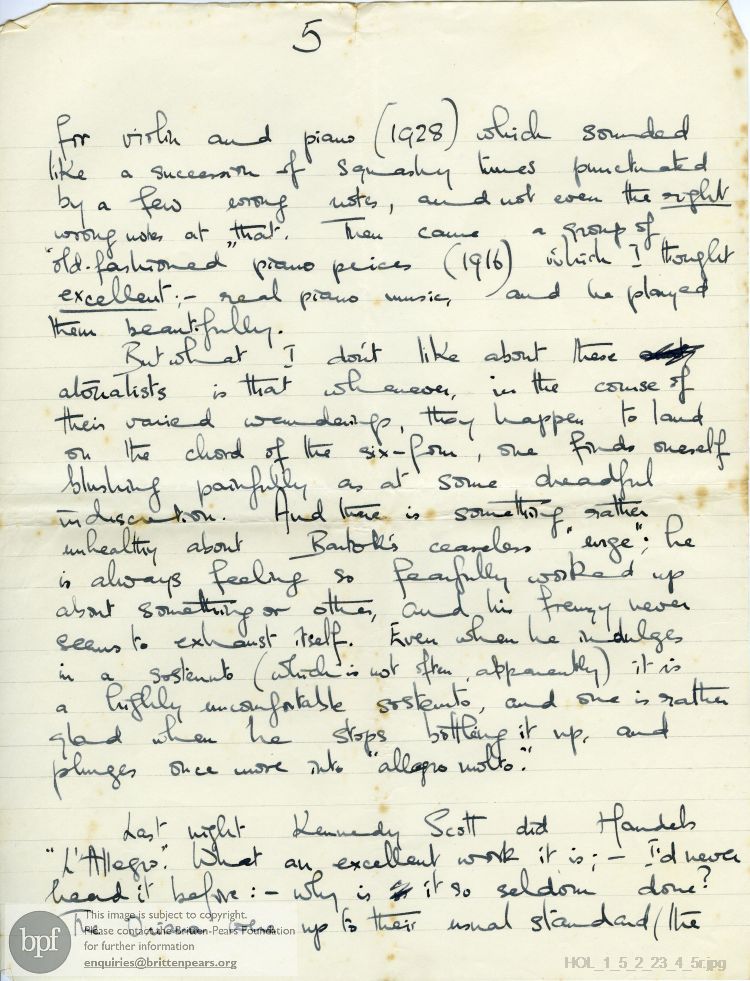 5
for violin and piano (1928) which sounded
like a succession of squashy tunes punctuated
by a few wrong notes, and not even the right
wrong notes at that. Then came a group of
"old-fashioned" piano peices (1916) which I thought
excellent:- real piano music, and he played
them beautifully.
But what I don't like about these
atonalists is that whenever, in the course of
their varied wanderings, they happen to land
on the chord of the six-four, one finds oneself
blushing painfully as at some dreadful
indiscretion. And there is something rather
unhealthy about Bartok's ceaseless "urge"; he
is always feeling so fearfully worked up
about something or other, and his frenzy never
seems to exhaust itself. Even when he indulges
in a sostenuto (which is not often, apparently) it is
a highly uncomfortable sostenuto, and one is rather
glad when he stops bottling it up, and
plunges once more into "allegro molto."
Last night Kennedy Scott did Handel's
"L'Allegro". What an excellent work it is; - I'd never
heard it before: - why is it so seldom done?
The were up to their usual standard (the
bpf
This image is subject to copyright.
Please contact the Britten-Pears Foundation
for further information
enquiries@brittenpears.org
HOL_1_5_2_23_4_5r.jpg